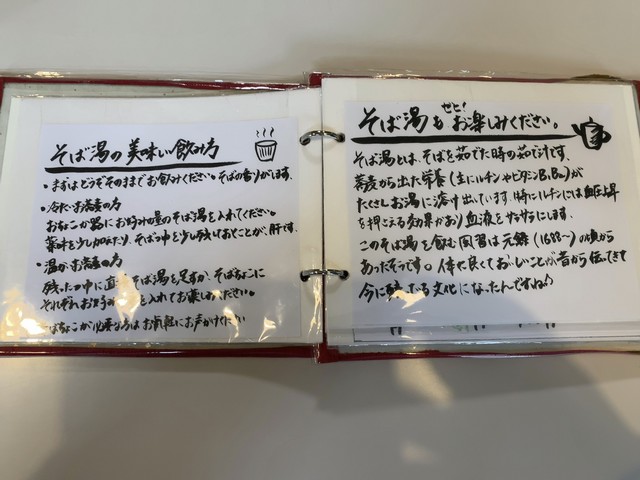 そば湯の美味い飲み方
・まずはどうぞそのままでお飲みください。そばの香りがします。
・冷たいお蕎麦の方
おちょこか器にお好みの量のそば湯を入れてください。
薬味を少し加えたり、そばつゆを少し残しておくことが、肝です。
・温かいお蕎麦の方
残ったつゆに直接そば湯を足すか、そばちょこに
それぞれお好みを入れてお楽しみください。
そばちょこが必要な方はお気軽にお声がけください
ぜひ!
そば湯もお楽しみください。
そば湯とは、そばを茹でた時の茹で汁です。
蕎麦から出た栄養(主にルチンやビタミンB1,B2)が
たくさんお湯に溶け出ています。特にルチンには血圧上昇
を押さえる効果があり血液をサラサラにします。
このそば湯を飲む風習は元禄(1688〜)の頃から
あったそうです。体に良くておいしいことが昔から伝わってきて
今に続いている文化になったんですね♪